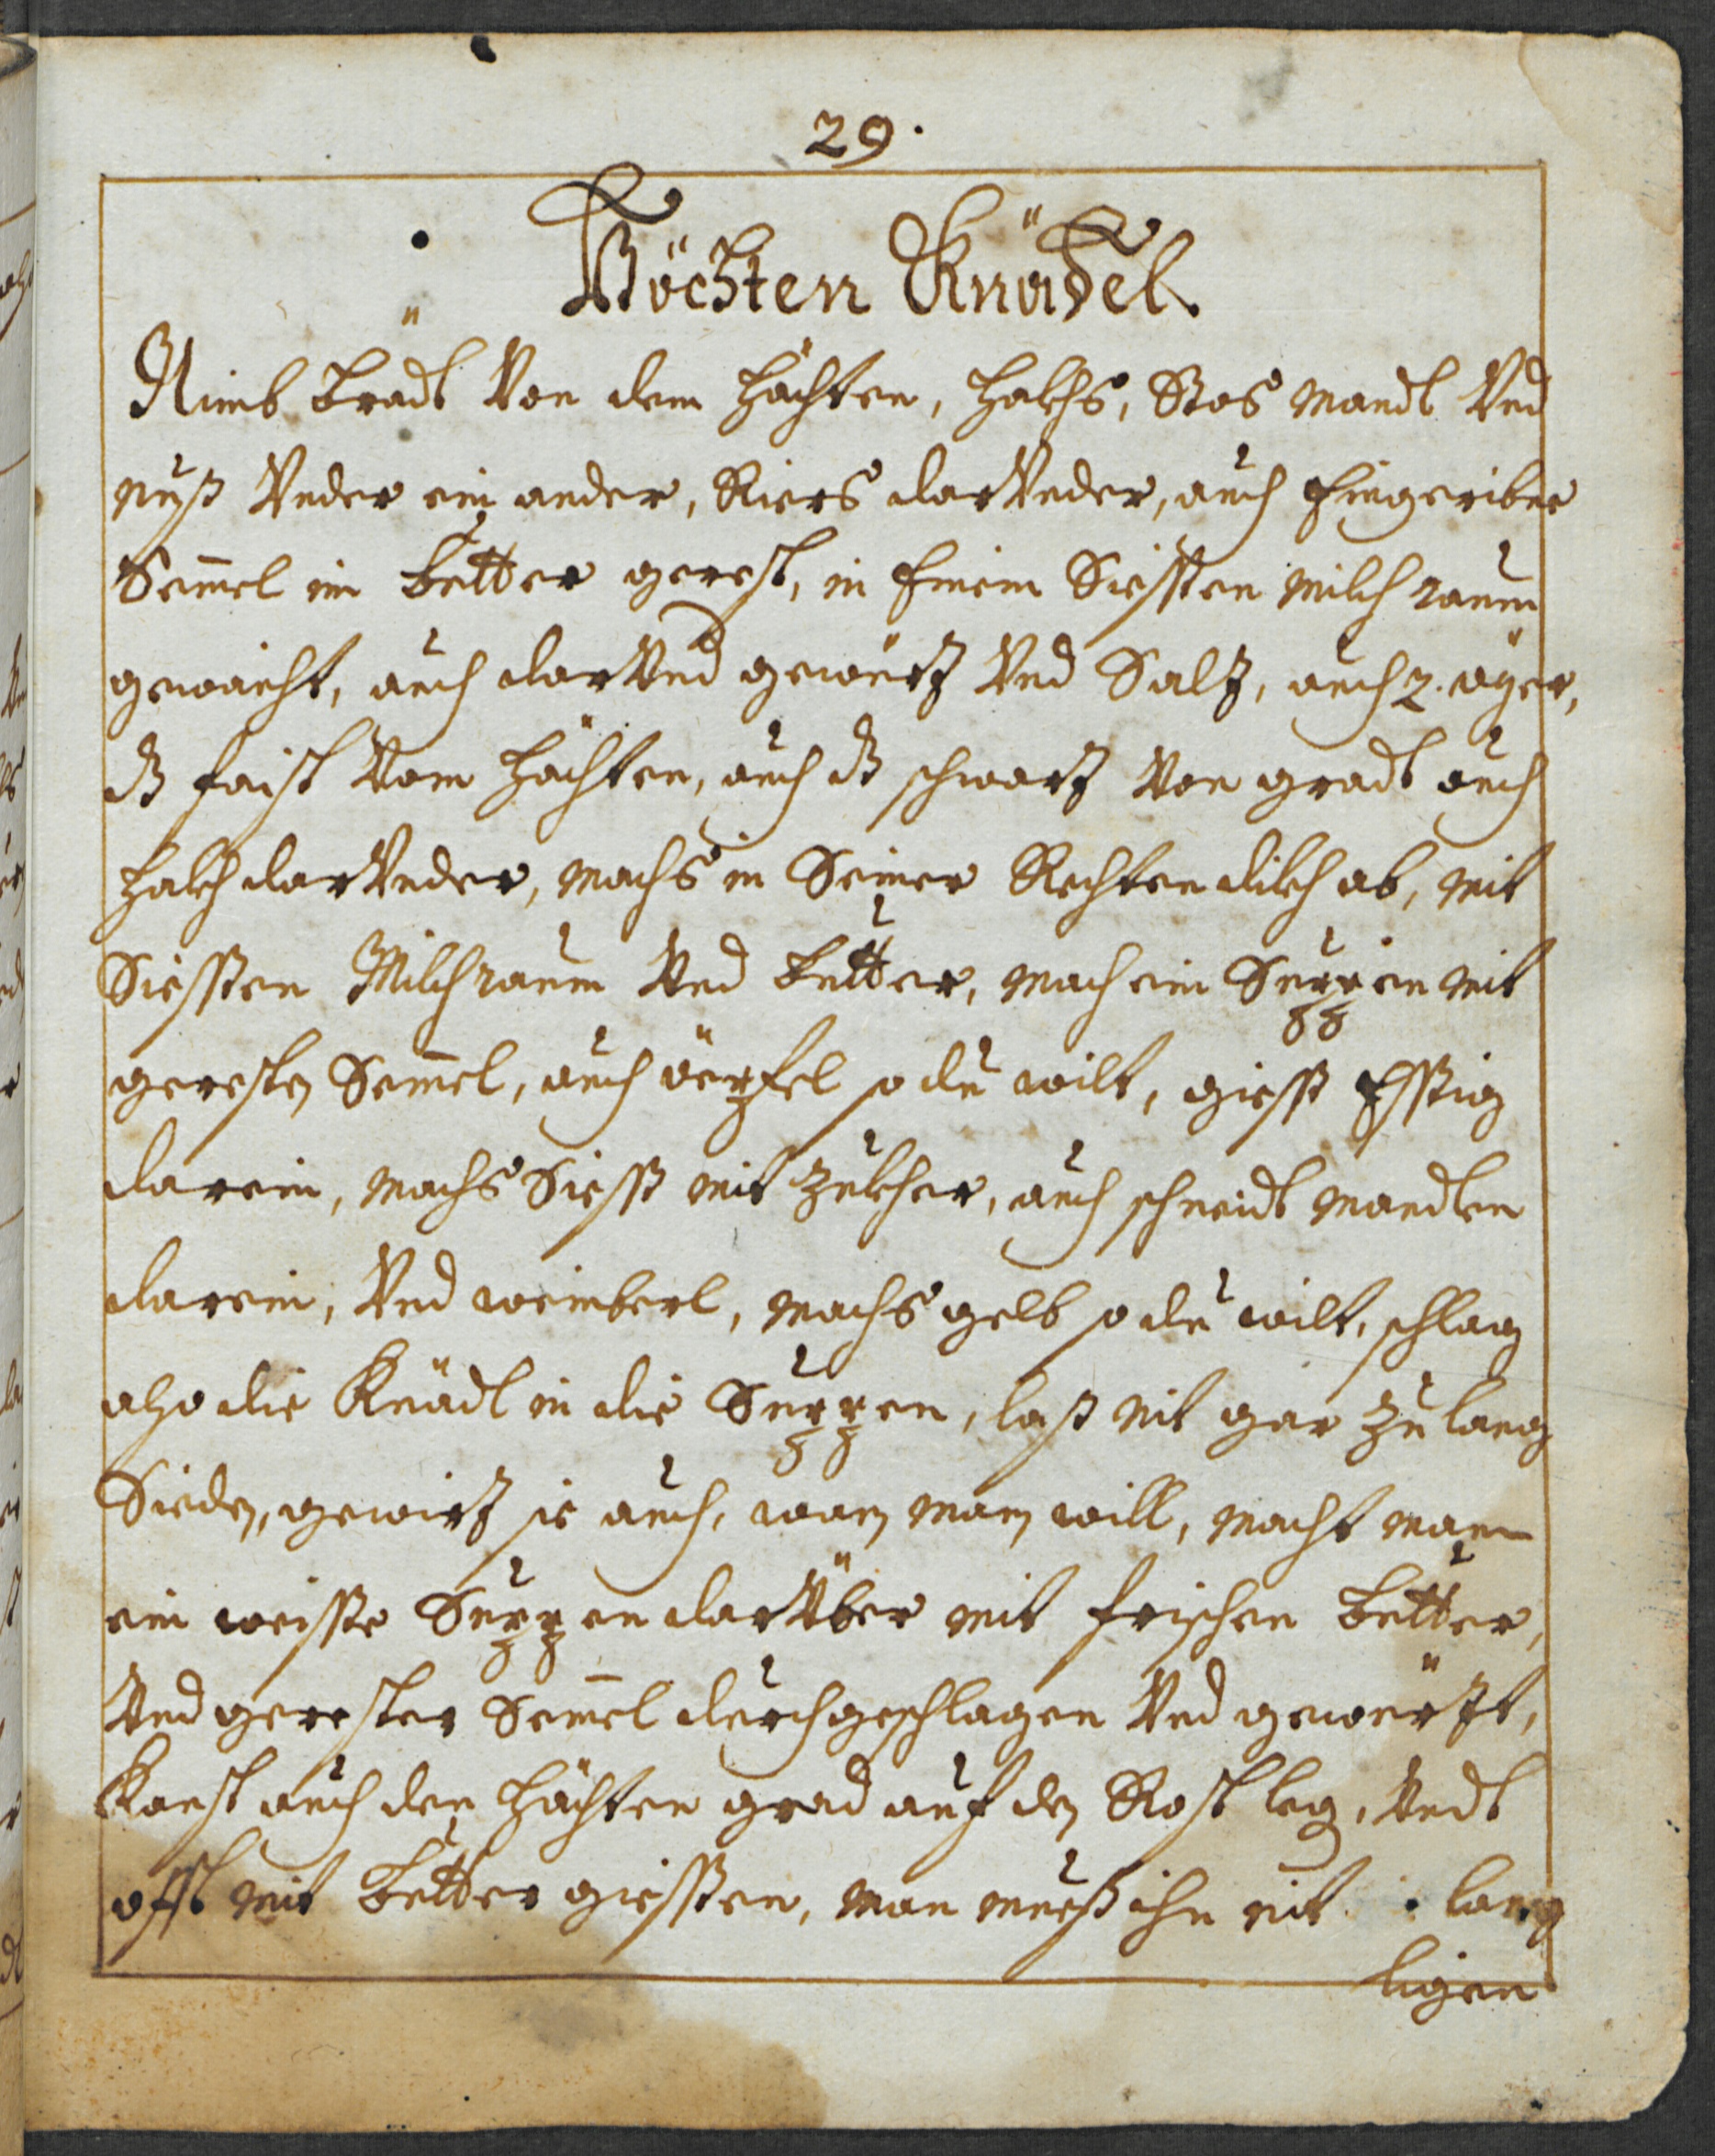 29.
Höchten Knädel.
Nimb brädt Von dem Hächten, Hakhs, Stos Mandl Vnd
Nuß Vnder ein ander, Riers darVnder, auch Eingeribne
Semel im Butter gerest, in Einem Siessen Milch raum
gewaicht, auch darVnd gewürtz Vnd Saltz, auch 2. äyer,
dß faist Vom Hächten, auch dß schwartz Von gradt auch
Hakh darVnder, Machs in Seiner Rechten dikh ab, mit
Siessen Milchraum Vnd Butter, mach ein Suppen mit
gereste Semel, auch äepfel so du wilt, giess Essig
darein, machs Siess mit Zukher, auch schneidt Mandlen
darein, Vnd weinberl, machs gelb so du wilt, schlag
also die Knädl in die Suppen, lass nit gar zu lang
Sieden, gewirtz sie auch, wan man will, macht man
ein weisse Suppen darÜber mit frischen Butter,
Vnd gerester Semel durchgeschlagen Vnd gewürtzt,
Kanst auch den Hächten grad auf den Rost leg, Vndt
offt mit Butter giessen, man muess ihn nit lang
ligen